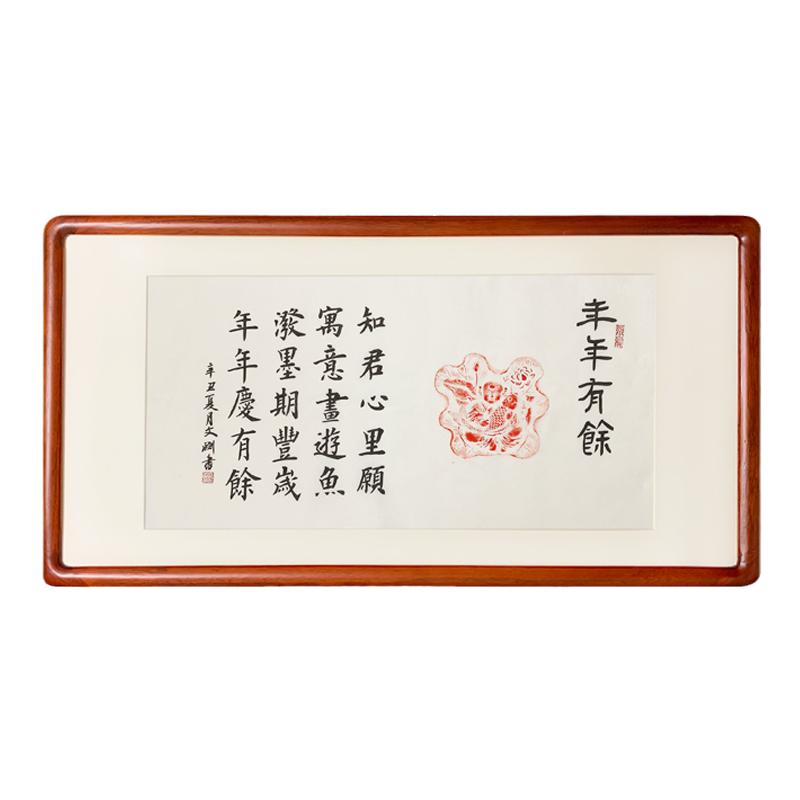 年年有餘
知君心里願
寓意畫遊魚
潑墨期豐歲
年年慶有餘
辛丑夏月文剛書